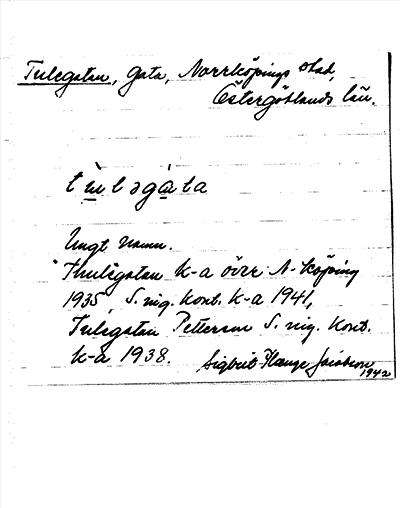 Tulegatan, gata, Norrköpings stad,
Östergötlands län.
tùləgáta
Ungt namn.
Thulegatan K-a över N-köping
1935 S. ing. kont. K-a 1941,
Tulegatan Petterson S. ing. Kont.
K-a 1938.
Sigbrit Hange Jacobson
1942